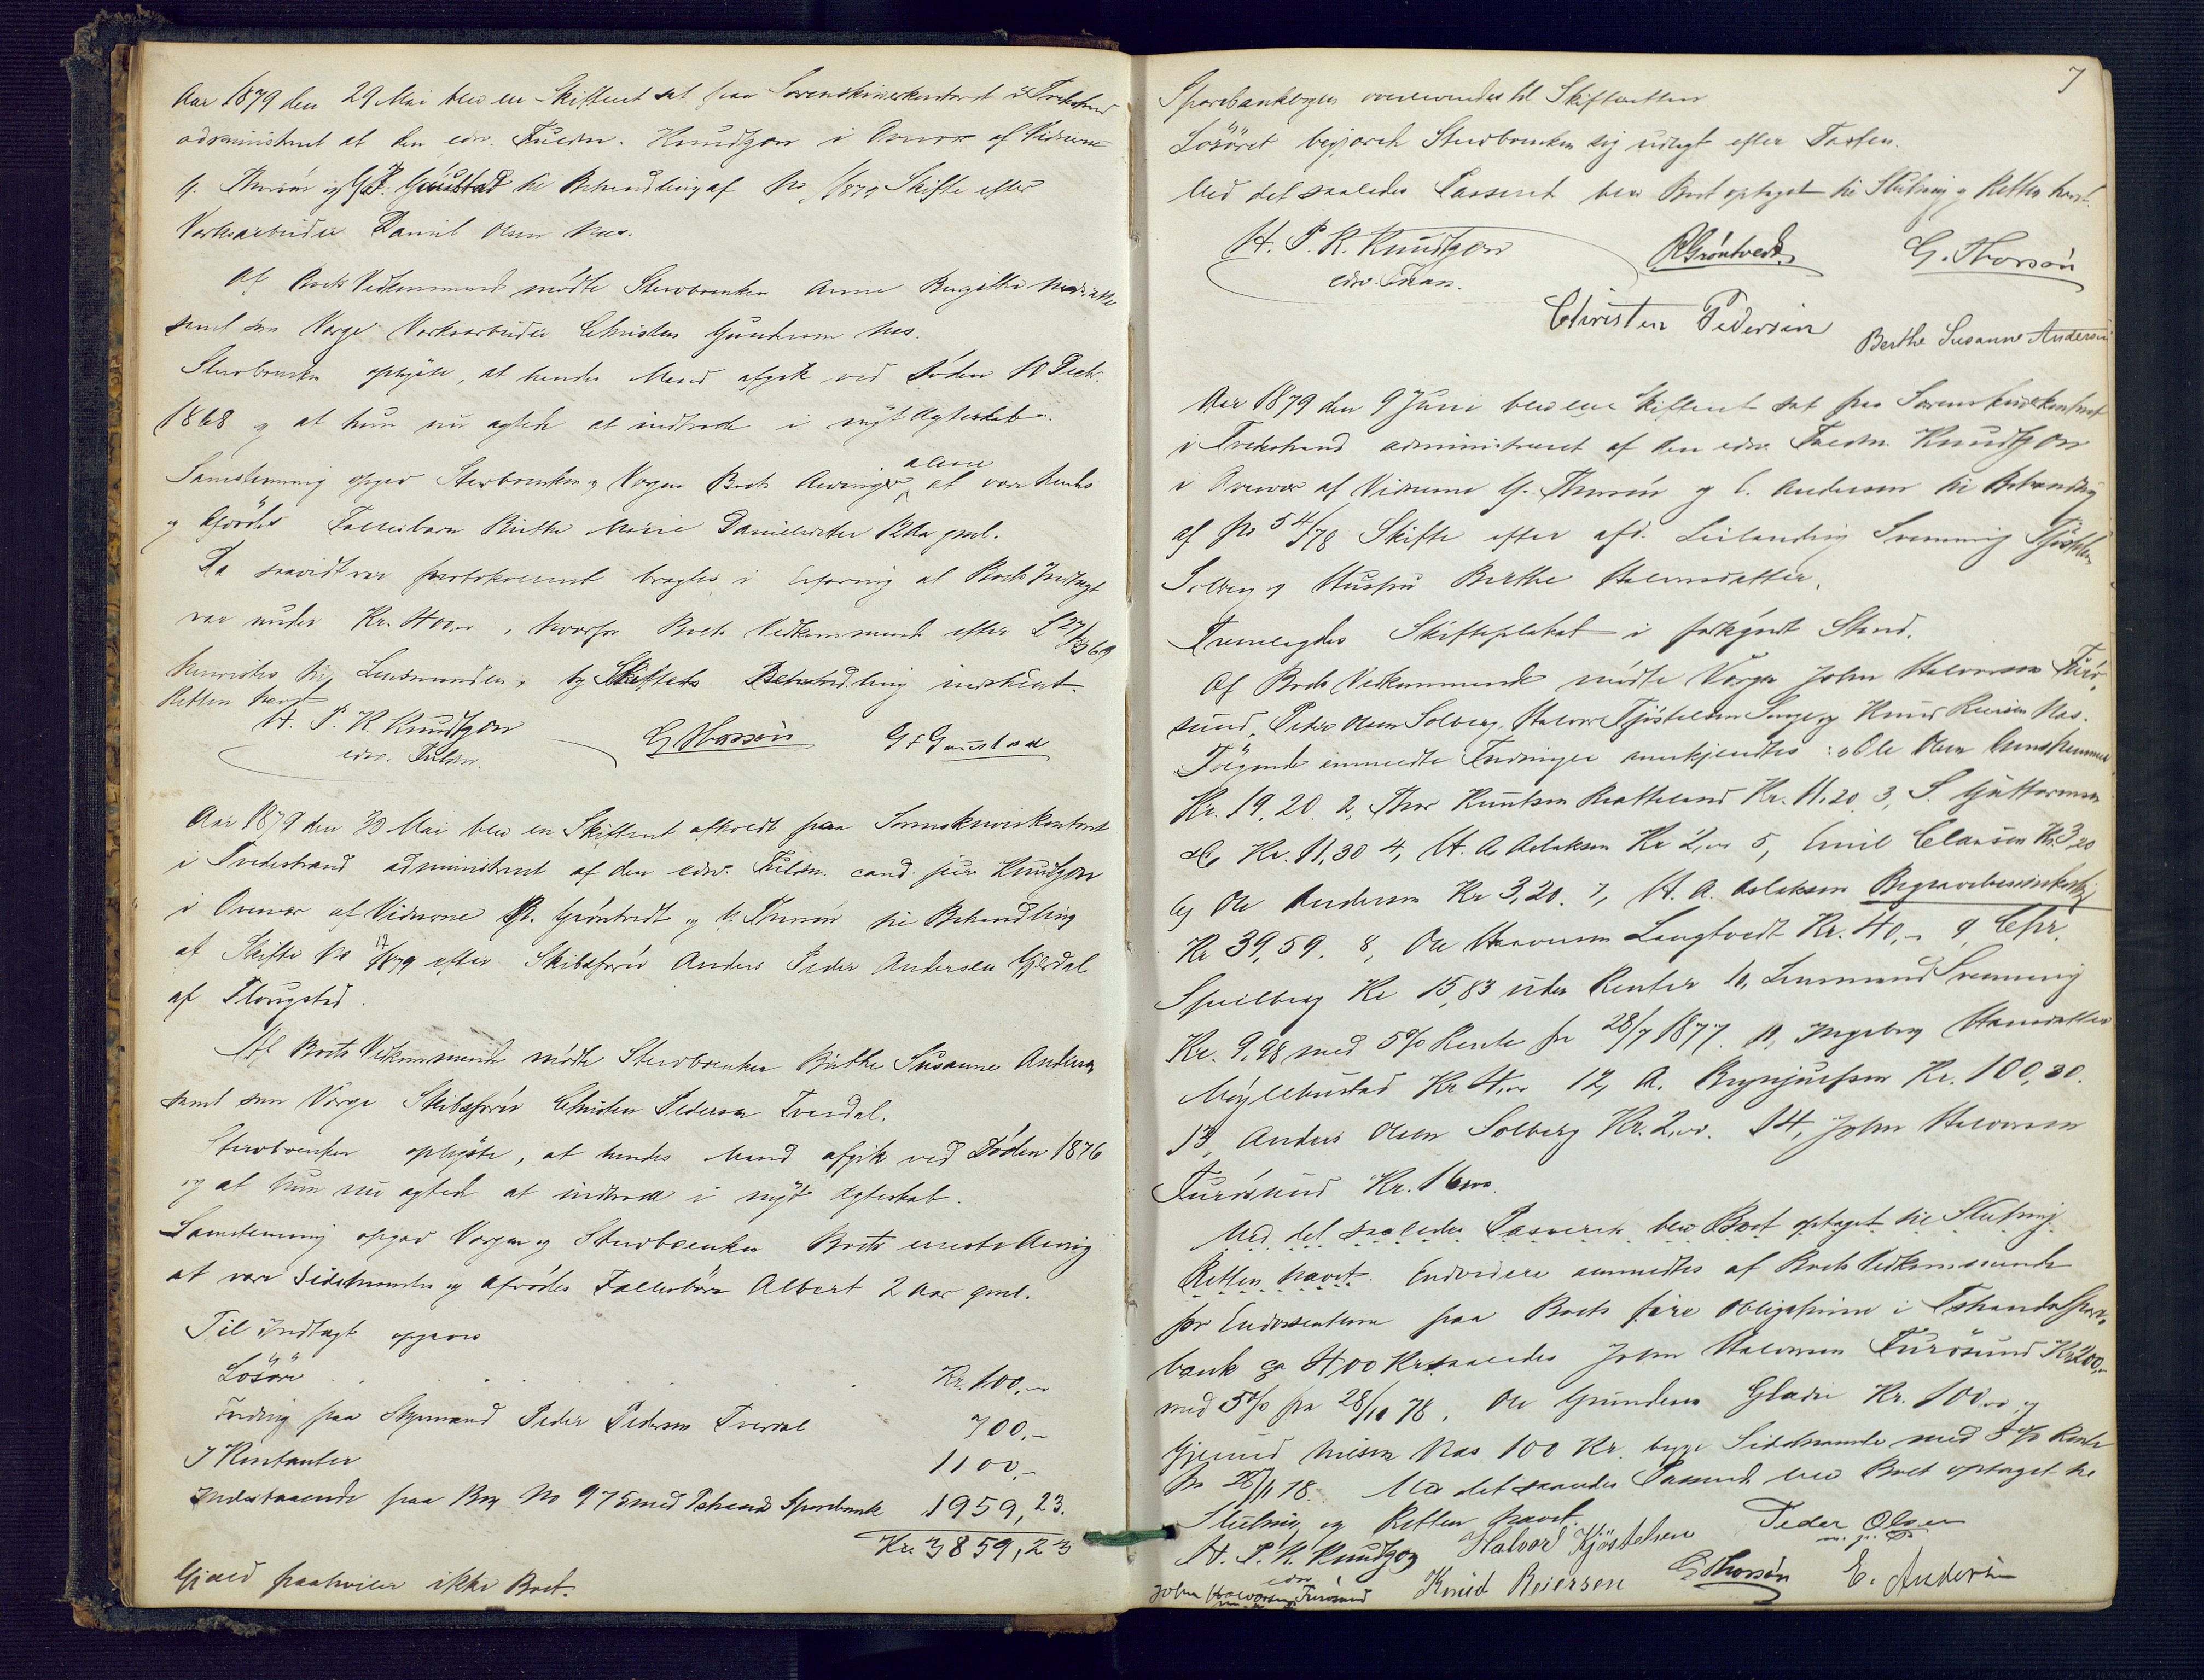 Aar 1879 den 29 Mai blev en Skifteret sat paa Sorenskriverkontoret i Tvedestrand
administreret af den edsv. Fuldm. Knudtzon i Overvær af Vidnerne
G. Thorsøn og G. F. Gunstad til Behandling af No /1879 Skifte efter
Værksarbeider Daniel Olsen Næs.
Af Boets Vedkommende mødte Stervboenken Anne Birgitte
samt som Værge Værksarbeider Christen Gundersen Næs.
Stervboenken oplyste, at hendes Mand afgik ved Døden 10 Decbr.
1868 og at hun nu agtede at indtræde i nyt Ægteskab.
Samstemmig opgav Stervboenken og Værgen Boets Arvinger alene at være hendes
og Afdødes Fællesbarn Birthe Marie Danielsdatter 12 Aar gml.
Da saavidt var protokolleret bragtes i Erfaring at Boets Indtægt
var under Kr. 400,00, hvorfor Boets Vedkommende efter L 27/3 69
henvistes til Lensmanden, og Skiftets Behandling indstillet.
Retten hævet
H. P. K Knudtzon
edsv. Fuldm.
G Thorsøn
G F Gunstad
Aar 1879 den 30 Mai blev en Skifteret afholdt paa Sorenskriverkontoret
i Tvedestrand administreret af den edsv. Fuldm. cand. jur. Knudtzon
i Overvær af Vidnerne R. Grøntvedt og G. Thorsøn til Behandling
af Skifte No 17/1879 efter Skibsfører Anders Peder Andersen Gjerdal
af Flougstad.
Af Boets Vedkommende mødte Stervboenken Birthe Susanne Andersen
samt som Værge Skibsfører Christen Pedersen Tverdal.
Stervboenken oplyste, at hendes Mand afgik ved Døden 1876
og at hun nu agtede at indtræde i nyt Ægteskab.
Samstemmig opgav Værgen og Stervboenken Boets eneste Arving
at være Sidstnævntes og Afdødes Fællesbarn Albert 2 Aar gml.
Til Indtægt opgaves
Løsøre Kr. 100,-
Fordring paa Styrmand Peder Pedersen Tverdal 700,-
I Kontanter 1100,-
Indestaaende paa Bog No 975 med Tstrands Sparebank 1959,23.
Kr. 3859,23
Gjæld paahviler ikke Boet.
7
Sparebankbogen oversendes til Skifteretten
Løsøret begjærede Stervboenken sig udlagt efter Taxten.
Med det saaledes Passerede blev Boet optaget til Slutning og Retten hævet.
H. P. K. Knudtzon
edsv. Fuldm.
R Grøntvedt
G. Thorsøn
Christen Pedersen
Berthe Susanne Andersen
Aar 1879 den 9 Juni blev en Skifteret sat paa Sorenskriverkontoret
i Tvedestrand administreret af den edsv. Fuldm. Knudtzon
i Overvær af Vidnerne G. Thorsøn og E. Andersen til Behandling
af No 54/78 Skifte efter afd. Leilænding Svennung Tjøstelsen
Solberg og Hustru Birthe Halvorsdatter.
Fremlagdes Skifteplakat i forkyndt Stand.
Af Boets Vedkommende mødte Værgen John Halvorsen Furø-
sund, Peder Olsen Solberg, Halvor Tjøstelsen Songe og Knud Reiersen Næs.
Følgende anmeldte Fordringer anerkjendtes: 1, Ole Olsen
Kr. 19,20. 2, Thor Knutsen Kr. 11,20. 3, S. Guttormsen
& Co Kr. 11,30 4, H. A. Aslaksen Kr 2,00 5, Emil Clausen Kr. 3,20
6, Ole Andersen Kr 3,20. 7, H. A. Aslaksen Begravelsesomkostn.
Kr 39,59. 8, Ole Halvorsen Langtvedt Kr. 40,- 9, Chr.
Speilberg Kr 15,83 uden Renter 10, Lensmand Svenning
Kr. 9,98 med 5% Rente fra 28/7 1877. 11, Ingeborg Hansdatter
Møglebustad Kr 4,00 12, A. Brynjulfsen Kr. 100,30.
13, Anders Olsen Solberg Kr. 2,00. 14, John Halvorsen
Furøsund Kr. 16,00.
Med det saaledes Passerede blev Boet optaget til Slutning.
Retten hævet. Endvidere anmeldtes af Boets Vedkommende
for Endossenterne paa Boets fire Obligationer i Tstrands Spare-
bank 400 Kr saaledes John Halvorsen Furøsund Kr 200,-
med 5% fra 28/11 78, Ole Gundersen Glader Kr. 100,00 og
Gjerund Nielsen Næs 100 Kr. begge Sidstnævnte med 5% Rente
fra 28/11 78. Med det saaledes Passerede blev Boet optaget til
Slutning og Retten hævet.
H. P. K. Knudtzon
edsv
Halvor Tjøstelsen
Peder Olsen
m. p. P.
John Halvorsen Furøsund
Knud Reiersen
G Thorsøn
E. Andersen